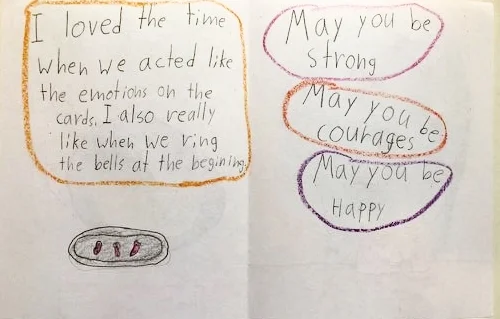 I loved the time
when we acted like
the emotions on the
cards. I also really
like when we ring
the bells at the begining
May you be
strong
May you be
courages
May you be
HAPPY